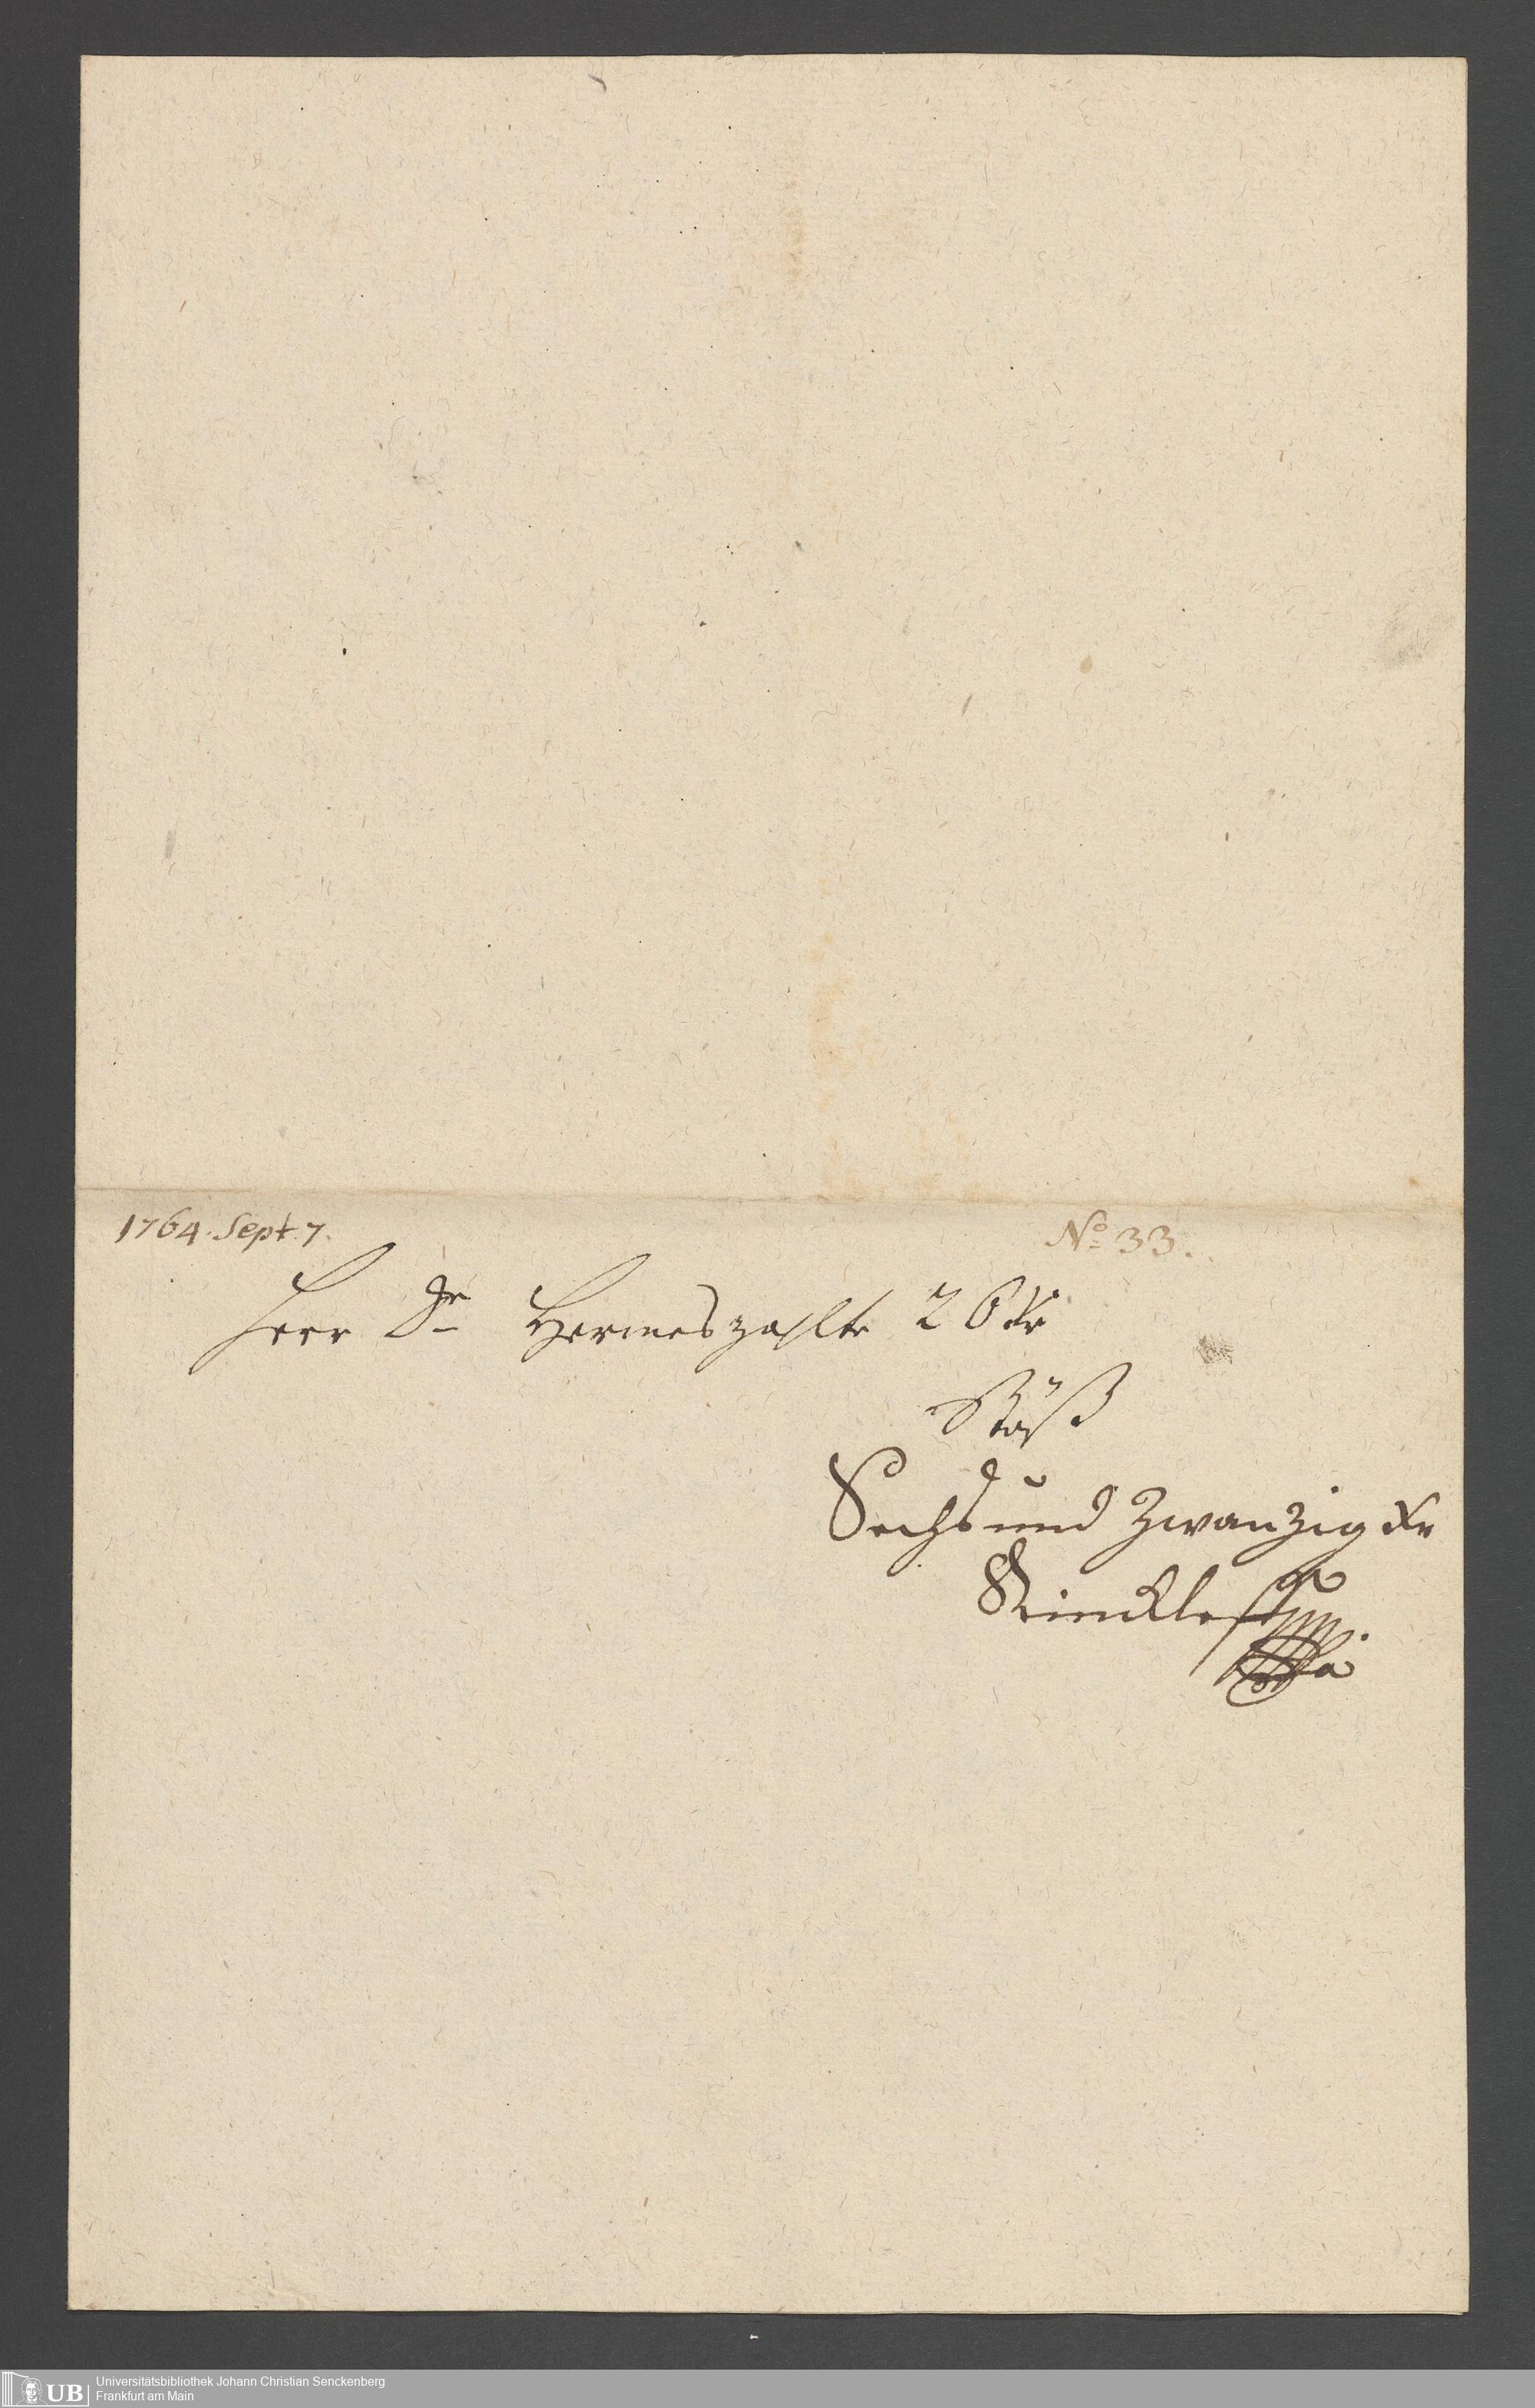 1764. Sept. 7.
No 33.
Herr Dr Hermes zahlte 26 Xr
Sechs und Zwanzig Xr
Universitätsbibliothek Johann Christian Senckenberg
UB Frankfurt am Main